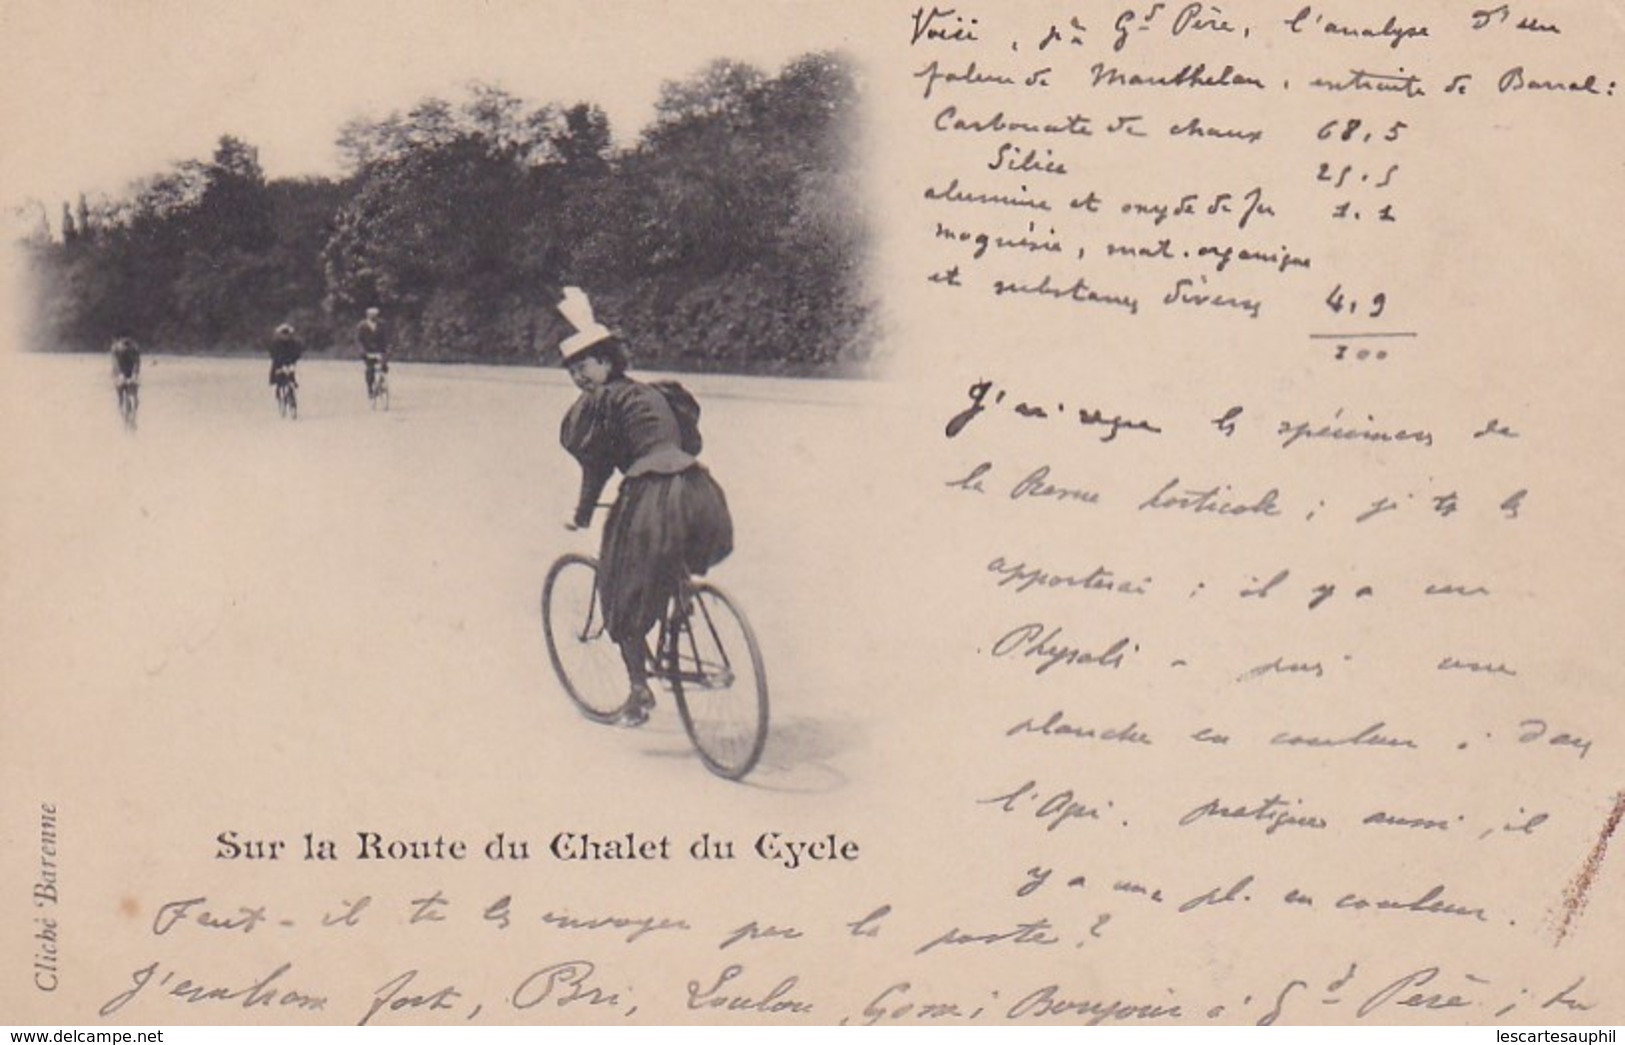 Voici, pr Gd Père, l'analyse d'un
falun de Manthelan, extraite de Barral :
Carbonate de chaux 68,5
Silice 25,5
alumine et oxyde de fer 1,1
magnésie, mat. organique
et substances diverses 4,9
100
J'ai reçu les spécimens de
la Revue horticole ; je te les
apporterai ; il y a un
Physalis - une
planche en couleur ; dans
l'Agri. pratique aussi, il
y a une pl. en couleur.
Sur la Route du Chalet du Cycle
Cliché Barenne
Faut-il te les envoyer par la poste ?
J'embrasse fort, Bri, Loulou, Bonjour à Gd Père ; tu
lescartesauphil